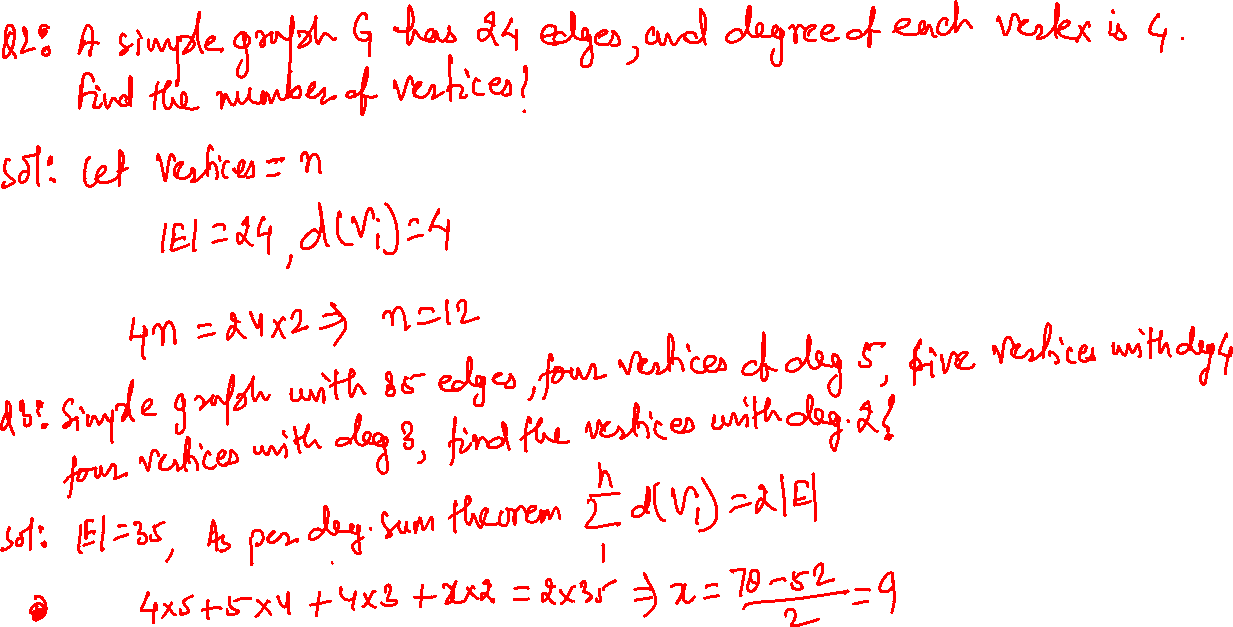 Q2: A simple graph G has 24 edges, and degree of each vertex is 4.
find the number of vertices?
Sol: let Vertices = n
|E| = 24, d(Vi) = 4
4n = 24x2 ⇒ n = 12
Q3: Simple graph with 35 edges, four vertices of deg 5, five vertices with deg 4
four vertices with deg 3, find the vertices with deg. 2?
Sol: |E| = 35, As per deg. sum theorem n Σ 1 d(Vi) = 2|E|
4x5 + 5x4 + 4x3 + x x 2 = 2x35 ⇒ x = 70-52 / 2 = 9